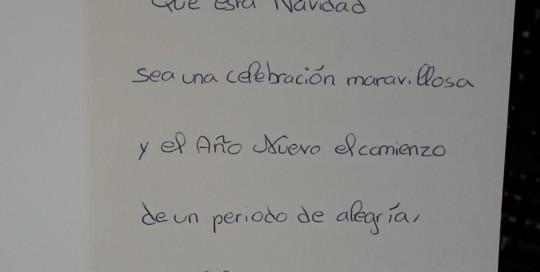 Que esta Navidad
sea una celebración maravillosa
y el Año Nuevo el comienzo
de un periodo de alegría,